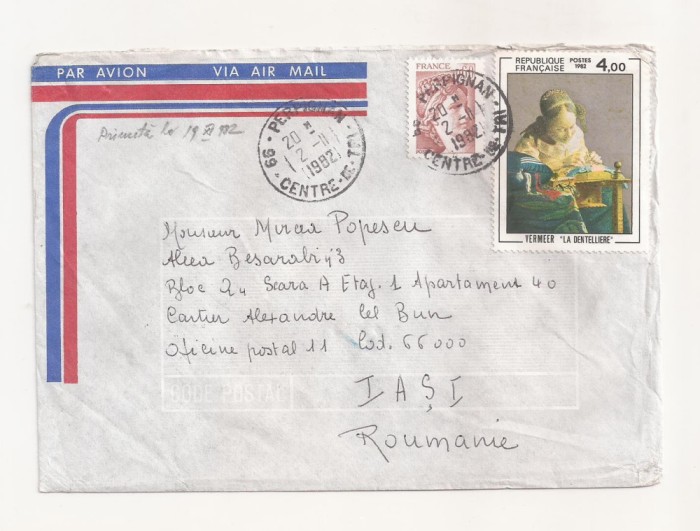 PAR AVION VIA AIR MAIL
FRANCE
REPUBLIQUE FRANÇAISE POSTES 1982 4,00
VERMEER "LA DENTELLIERE"
66 * PERPIGNAN
20 H
2 - 11
1982
CENTRE
66 * PERPIGNAN
20 H
2 - 11
1982
CENTRE
Primită la 19 XI 982
Monsieur Mircea Popescu
Aleea Besarabi
Bloc Scara A Etaj. 1 Apartament 40
Cartier Alexandre cel Bun
Oficine postal 11 Cod. 66000
CODE POSTAL
IAŞI
Roumanie